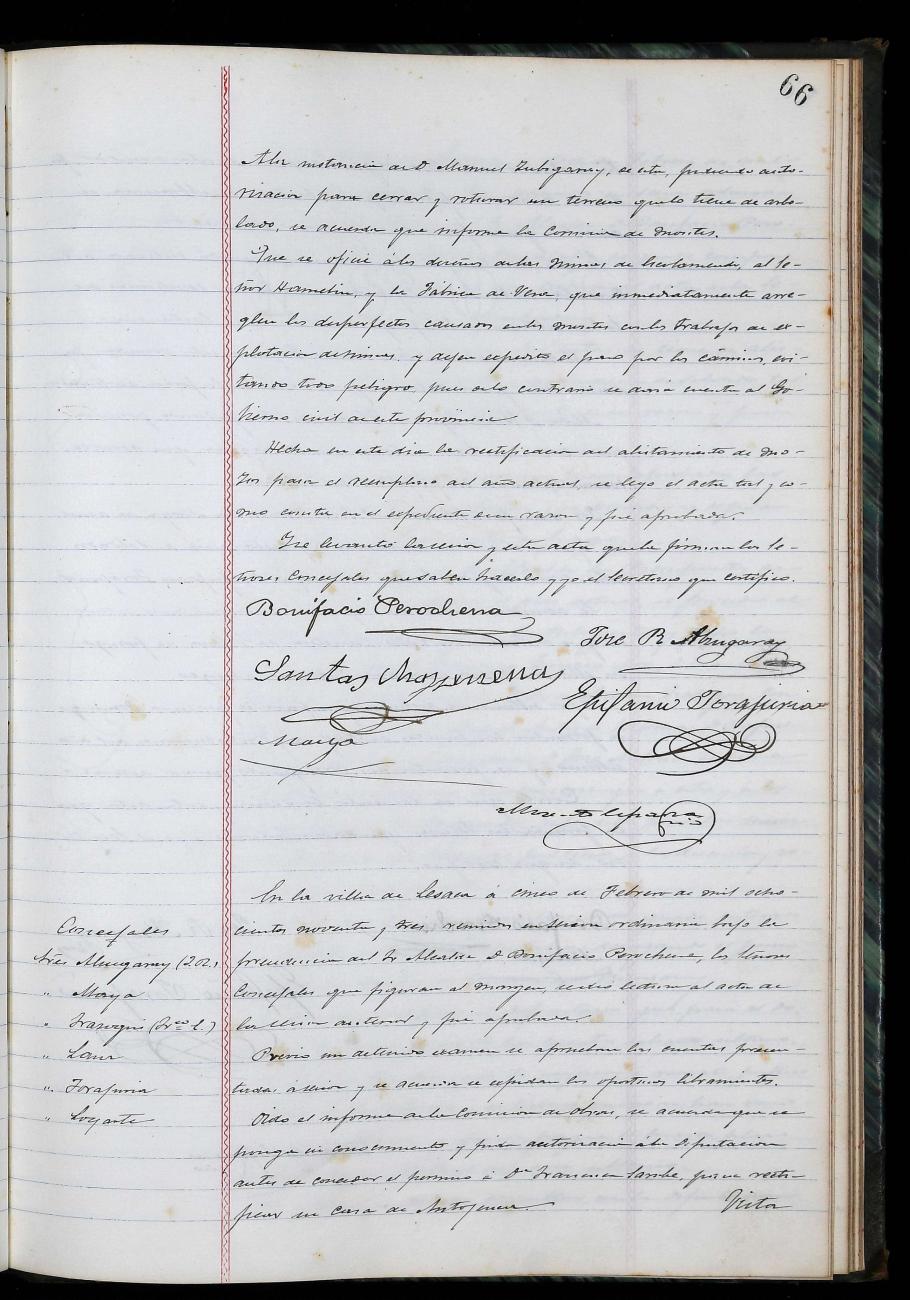 66
A la instancia de D Manuel Zubigaray, de esta, pidiendo auto-
rizacion para cerrar y roturar un terreno que lo tiene de arbo-
lado, se acuerda que informe la Comision de Montes.
Que se oficie á los dueños de las minas de al Se-
ñor Hamelin, y la Fábrica de Vera, que inmediatamente arre-
glen los desperfectos causados en los montes con los trabajos de ex-
plotacion de minas, y dejen espedito el paso por los caminos, evi-
tando todo peligro, pues de lo contrario se daria cuenta al Go-
bierno civil de esta provincia
Hecha en este dia la rectificacion del alistamiento de mo-
zos para el reemplazo del año actual, se leyó el acta tal y co-
mo consta en el espediente de su razon y fué aprobada.
Y se levantó la sesion y esta acta que la firman los Se-
ñores Concejales que saben hacerlo y yo el Secretario que certifico.
Bonifacio Perochena
Jose R Abugaray
Santos
Epifanio Torajuria
Maya
En la villa de Lesaca á cinco de Febrero de mil ocho-
cientos noventa y tres, reunidos en sesion ordinaria bajo la
Concejales
presidencia del Sr Alcalde D Bonifacio Perochena, los Señores
Sres Abugaray (J.R.)
Concejales que figuran al margen, se dió lectura al acta de
" Maya
la sesion anterior y fué aprobada.
" (Frco )
Previo un detenido examen se aprueban las cuentas presen-
" Lanz
tadas á sesion y se acuerda se espidan los oportunos libramientos.
" Torajuria
Oido el informe de la Comision de Obras, se acuerda que se
" Loyarte
ponga en conocimiento y pida autorizacion á la Diputacion
antes de conceder el permiso á Da Francisca para recti-
ficar su casa de
Vista